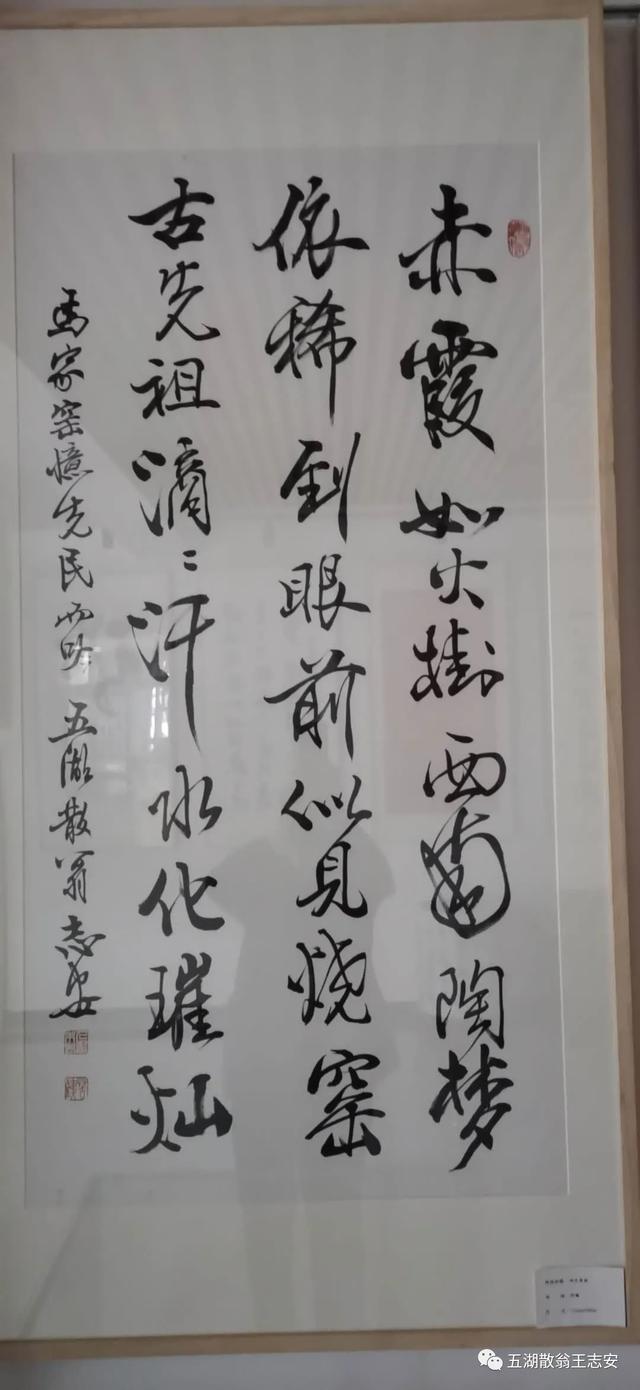 赤霞如火树西南陶梦
依稀到眼前似见烧窑
古先祖滴滴汗水化璀灿
馬家窑憶先民而吟 五湖散翁志安
五湖散翁王志安